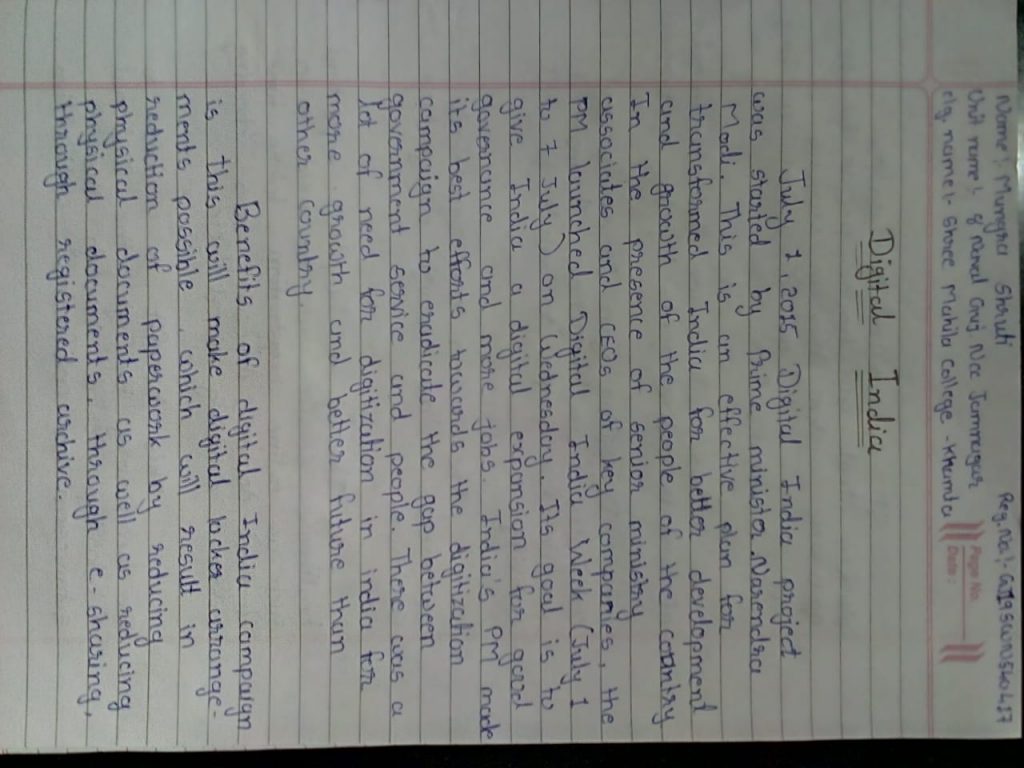 Name:- Mungra Shruti Reg. No:-
Unit name:- 8 Naval Guj. Ncc Jamnagar
clg. name:- Shree Mahila College - Khambha
Page No.
Date:
Digital India
July 1, 2015 Digital India project
was started by Prime minister Narendra
Modi. This is an effective plan for
transformed India for better development
and growth of the people of the country
In the presence of senior ministry
associates and CEOs of key companies, the
PM launched Digital India Week (July 1
to 7 July) on Wednesday. Its goal is to
give India a digital expension for good
governance and more jobs. India's PM made
its best efforts towards the digitization
campaign to eradicate the gap between
government service and people. There was a
lot of need for digitization in india for
more growth and better future than
other country.
Benefits of digital India campaign
is this will make digital locker arrange-
ments possible, which will result in
reduction of paperwork by reducing
physical documents as well as reducing
physical documents. through e-sharing,
through registered archive.